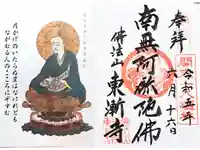 奉拝
令和五年
六月十六日
南無阿弥陀佛
佛法山
東漸寺
月かげのいたらぬ里はなけれども
ながむる人のこころにぞすむ